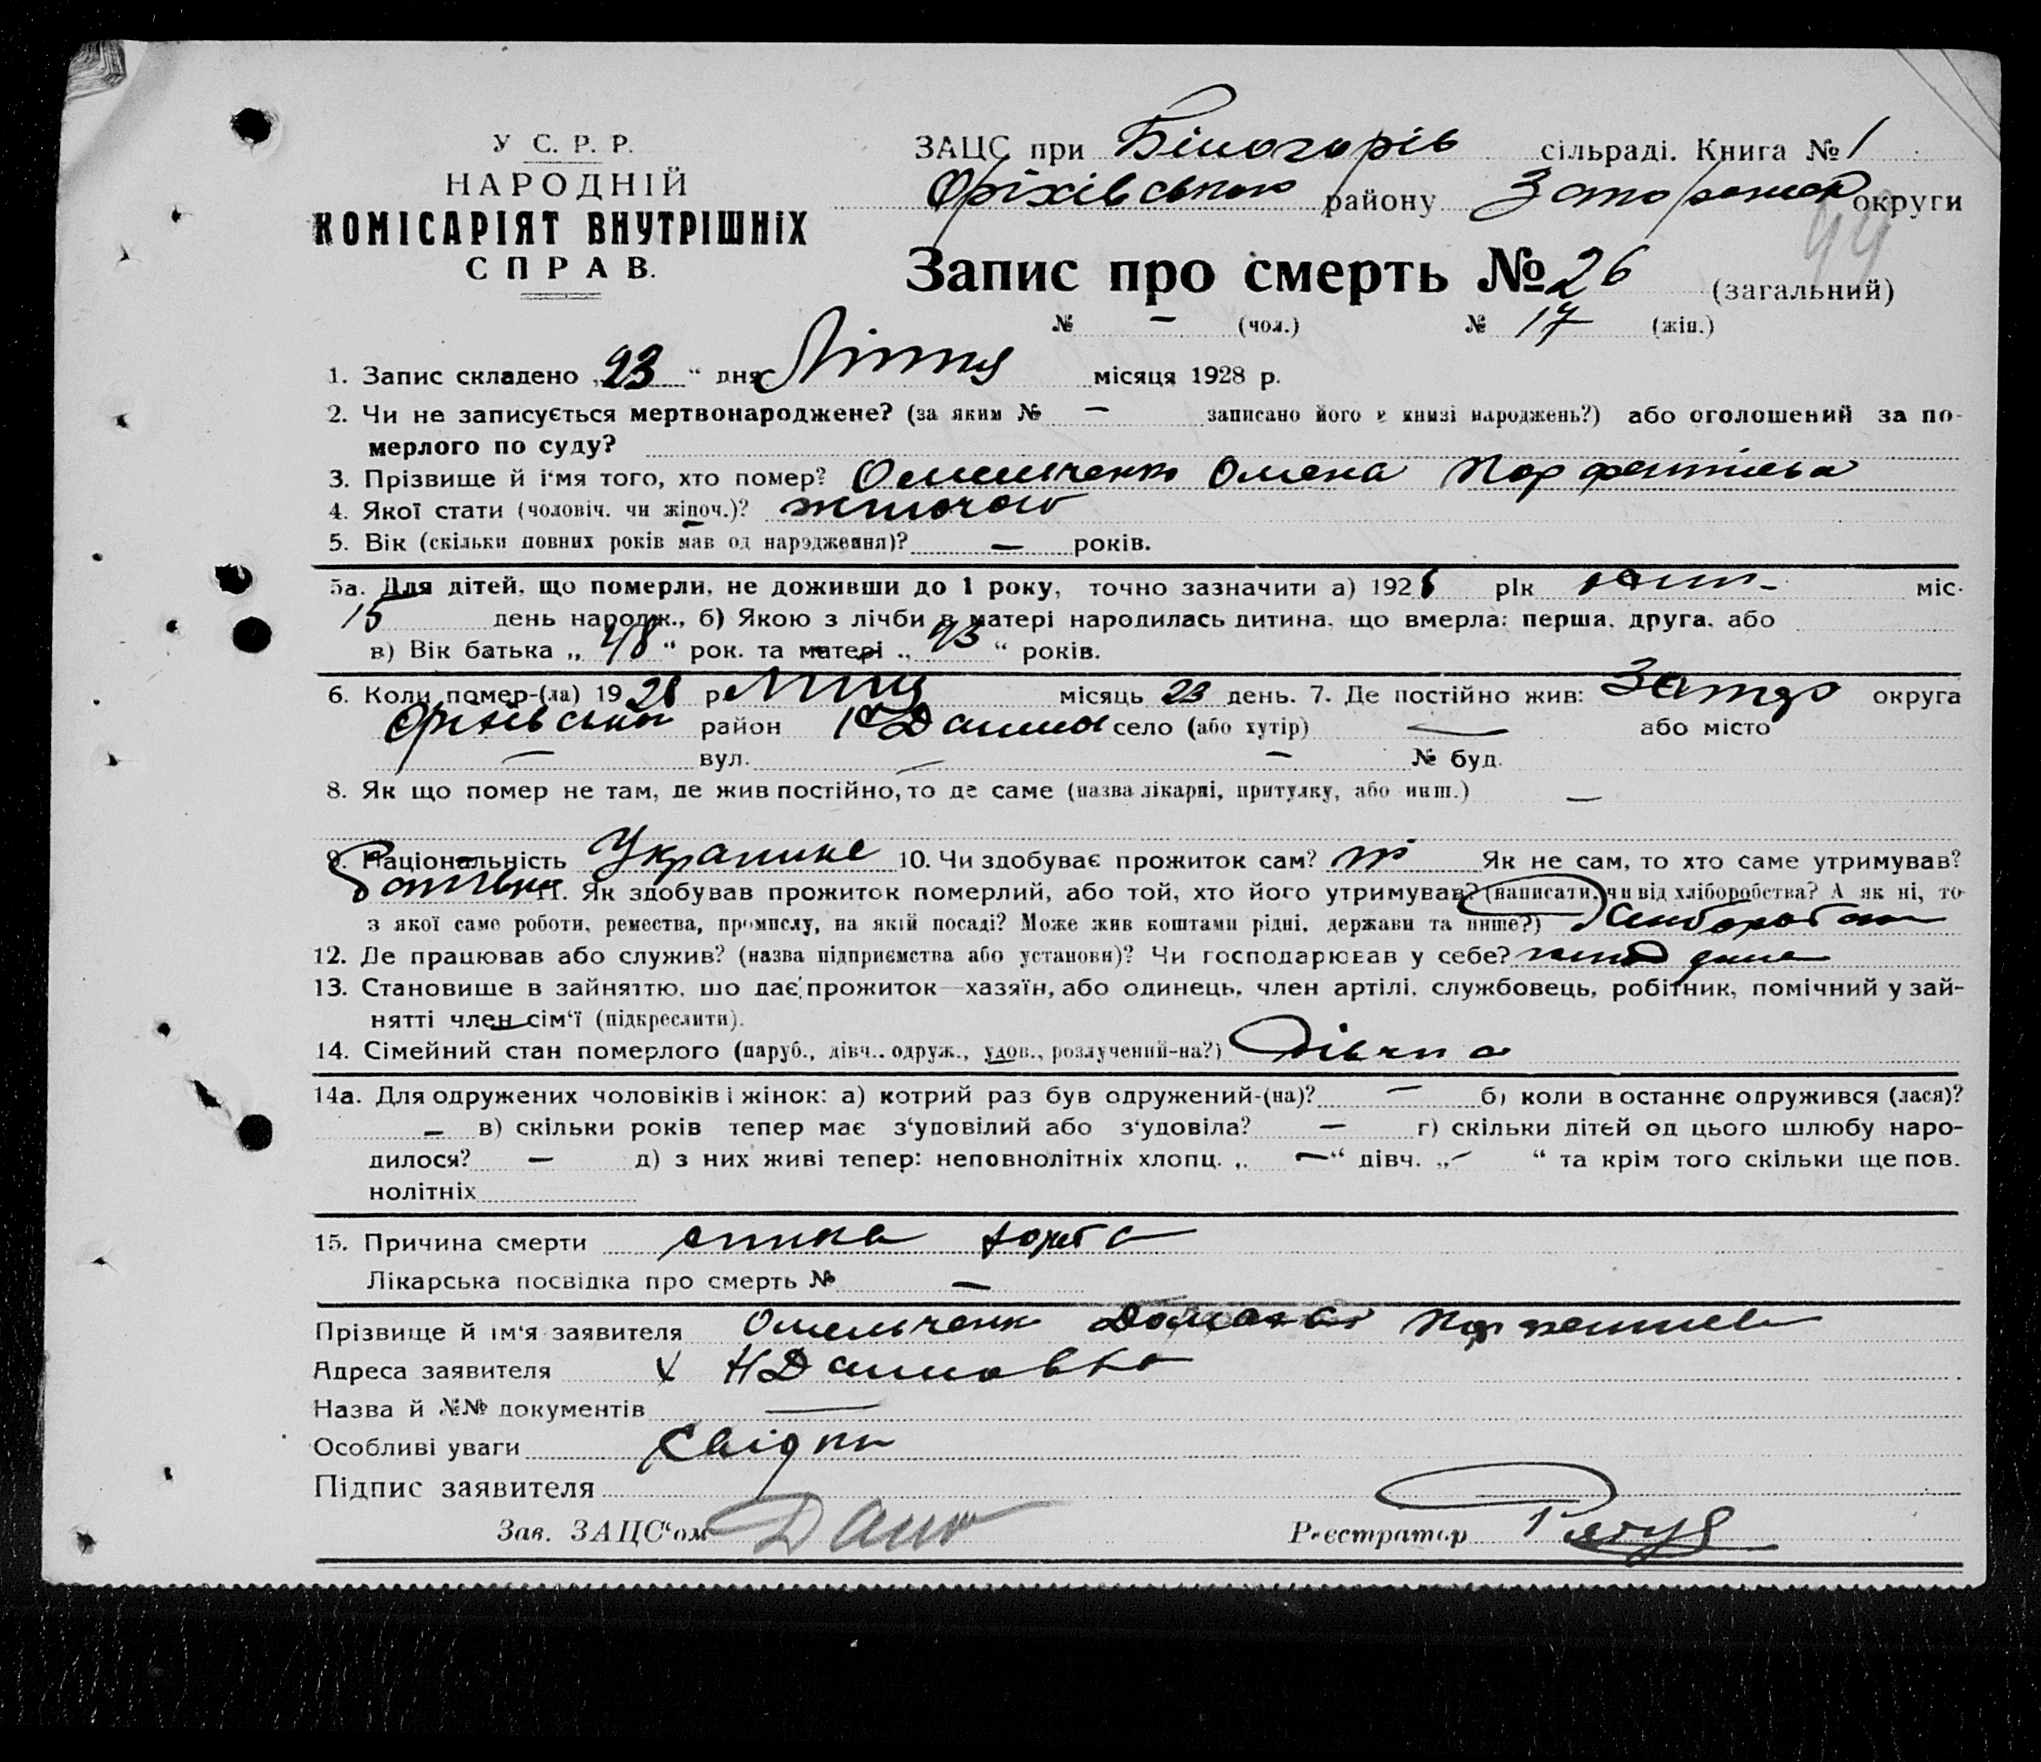 У С. Р. Р.
НАРОДНІЙ
КОМІСАРІЯТ ВНУТРІШНІХ
СПРАВ.
ЗАЦС при Білогорів сільраді. Книга № 1
Оріхівського району округи
44
Запис про смерть № 26 (загальний)
№ — (чол.) № 17 (жін.)
1. Запис складено „23“ дня Липня місяця 1928 р.
2. Чи не записується мертвонароджене? (за яким № — записано його в книзі народжень?) або оголошений за по-
мерлого по суду?
3. Прізвище й ім'я того, хто помер? Омельченко Олена
4. Якої стати (чоловіч. чи жіноч.)? жіночої
5. Вік (скільки повних років мав од народження)? — років.
5а. Для дітей, що померли, не доживши до 1 року, точно зазначити а) 1928 рік міс.
15 день народж., б) Якою з лічби в матері народилась дитина, що вмерла: перша, друга, або
в) Вік батька „48“ рок. та матері „43“ років.
6. Коли помер-(ла) 1928 р. місяць 23 день. 7. Де постійно жив: округа
Оріхівськ район село (або хутір) — або місто
— вул. — — № буд.
8. Як що помер не там, де жив постійно, то де саме (назва лікарні, притулку, або инш.) —
9. Національність 10. Чи здобуває прожиток сам? ні Як не сам, то хто саме утримував?
батько 11. Як здобував прожиток померлий, або той, хто його утримував? (написати, чи від хліборобства? А як ні, то
з якої саме роботи, ремества, промислу, на якій посаді? Може жив коштами рідні, держави та инше?)
12. Де працював або служив? (назва підприємства або установи)? Чи господарював у себе?
13. Становище в зайняттю, що дає прожиток—хазяїн, або одинець, член артілі, службовець, робітник, помічний у зай-
нятті член сім'ї (підкреслити).
14. Сімейний стан померлого (паруб., дівч., одруж., удов., розлучений-на?) Дівчина
14а. Для одружених чоловіків і жінок: а) котрий раз був одружений-(на)? — б) коли в останнє одружився (лася)?
— в) скільки років тепер має з'удовілий або з'удовіла? — г) скільки дітей од цього шлюбу наро-
дилося? — д) з них живі тепер: неповнолітніх хлопц. „—“ дівч. „—“ та крім того скільки ще пов.
нолітніх
15. Причина смерти
Лікарська посвідка про смерть № —
Прізвище й ім'я заявителя Омельченк
Адреса заявителя х НДаниловка
Назва й №№ документів —
Особливі уваги Свідки
Підпис заявителя
Зав. ЗАЦС'ом
Реєстратор